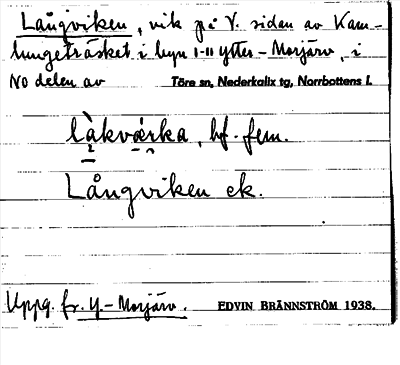 Långviken, vik på V. sidan av Kam-
lungeträsket i byn 1-11 Ytter-Morjärv, i
NO delen av Töre sn, Nederkalix tg, Norrbottens l.
làkværka, bf. fem.
Långviken ek.
Uppg. fr. Y.-Morjärv. EDVIN BRÄNNSTRÖM 1938.